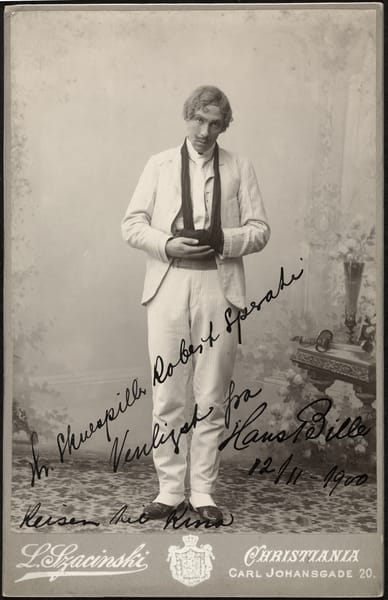 Hr Skuespiller Robert Sperati
Venligst fra
Hans Bille
12/11 1900
Reisen til Kina
L. Szacinski
CHRISTIANIA
CARL JOHANSGADE 20.